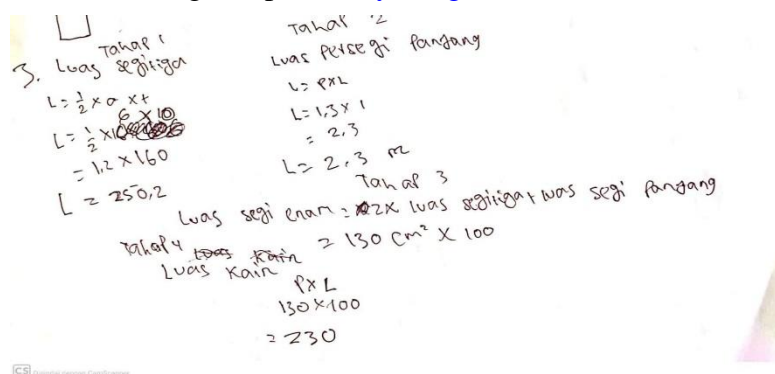 Tahap 1
3. Luas segitiga
L = 1/2 x a x t
L = 1/2 x 6 x 10
= 1,2 x 160
L = 250,2
Tahap 2
Luas Persegi Panjang
L = P x L
L = 1,3 x 1
= 2,3
L = 2,3 m
Tahap 3
Luas segi enam = 2x luas segitiga + luas segi panjang
= 130 cm² x 100
Tahap 4
Luas Kain
P x L
130 x 100
= 230
CS